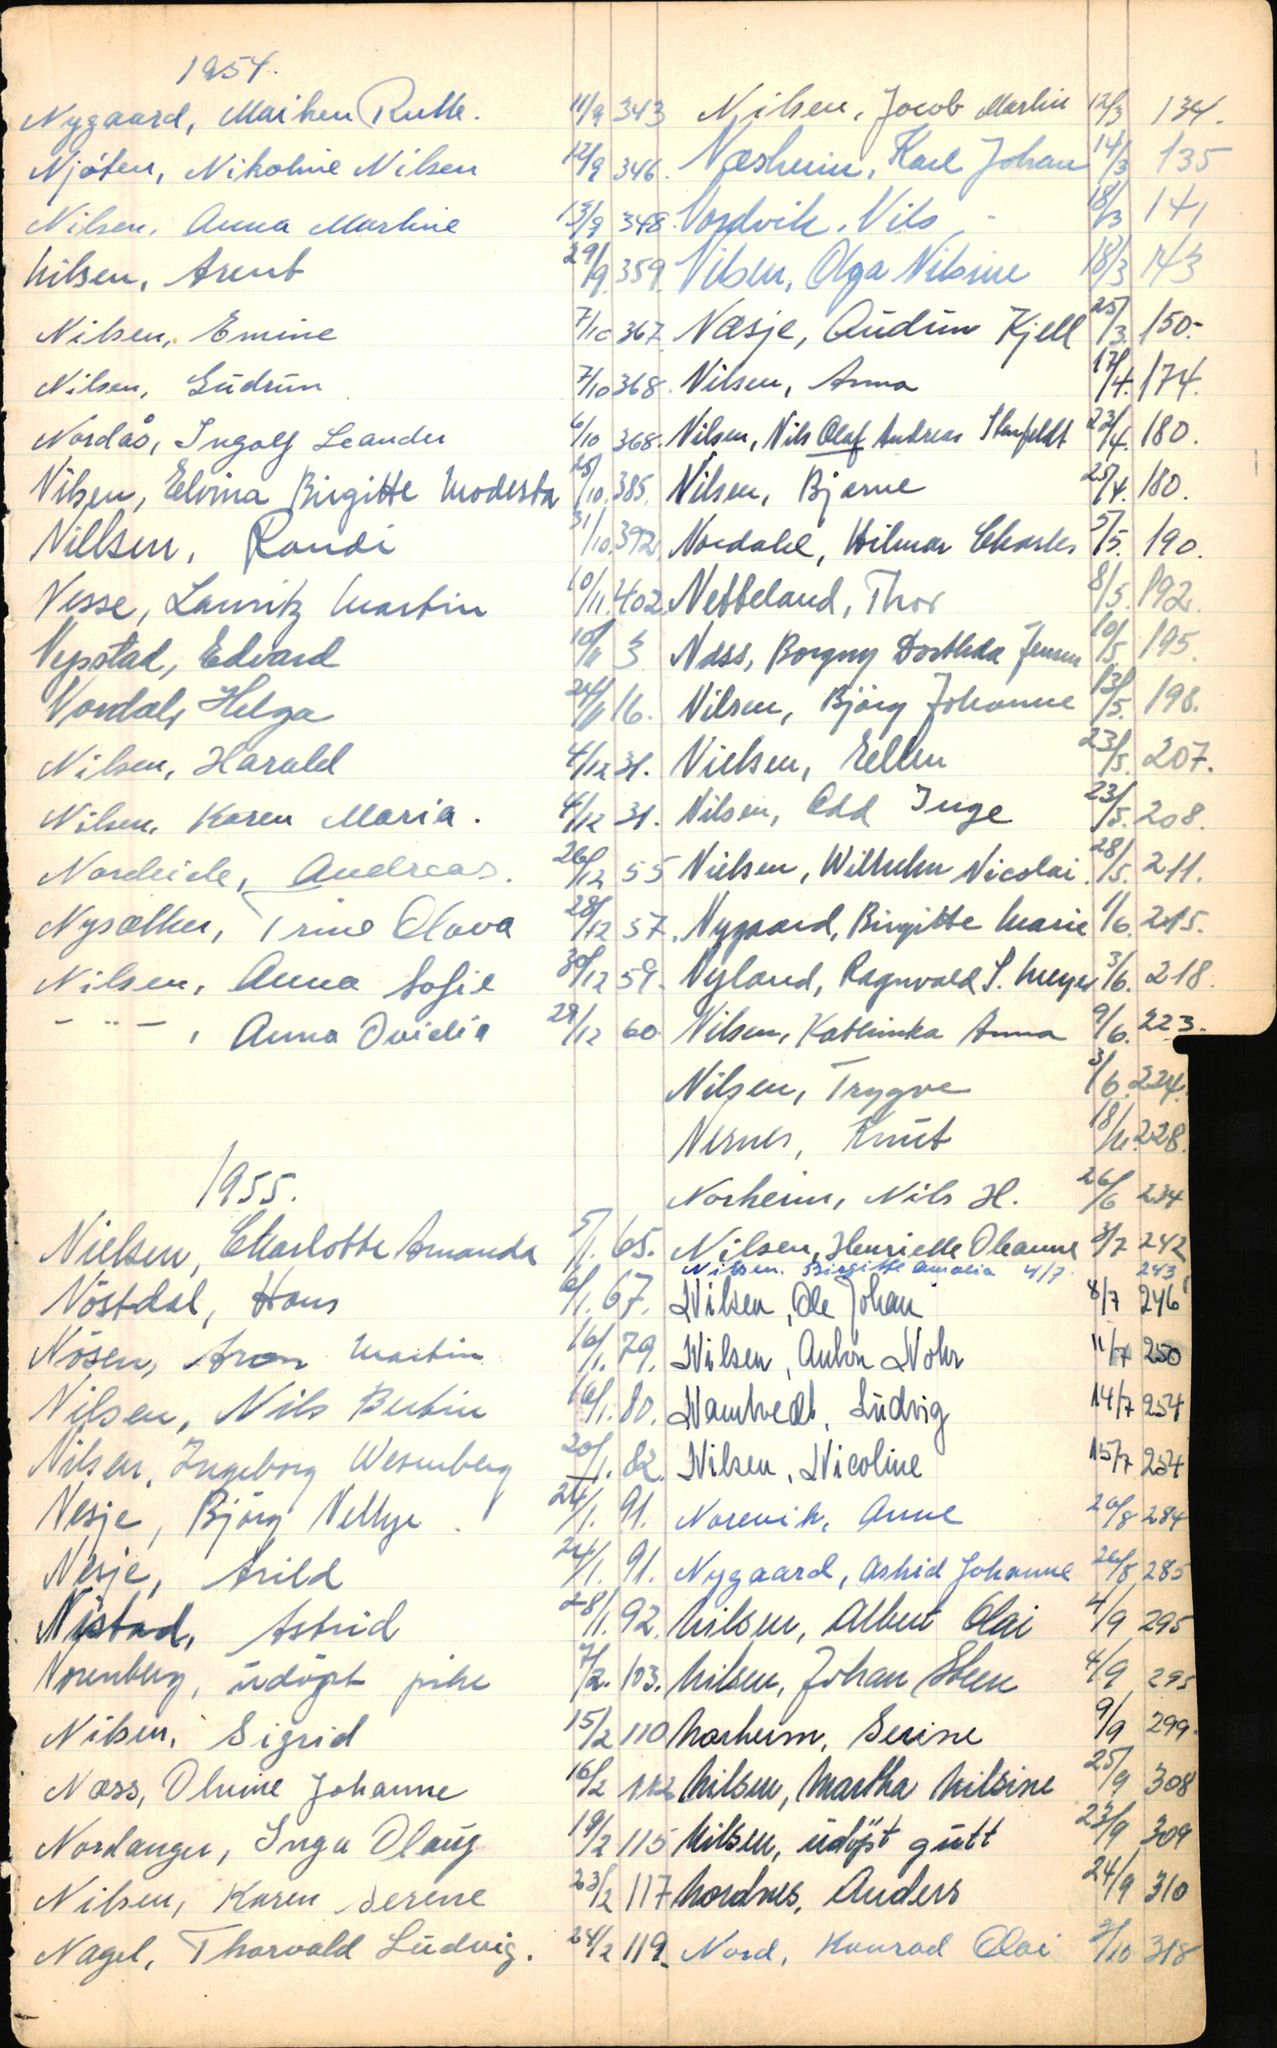 1954.
Nygaard, Maiken Ruth. 11/9 343
Njöten, Nikoline Nilsen 12/9 346.
Nilsen, Anna Martine 13/9 348.
Nilsen, Arent 29/9 359
Nilsen, Emine 7/10 367
Nilsen, Gudrun 7/10 368.
Nordås, Ingolf Leander 6/10 368.
Nilsen, Elvina Birgitte Modesta 25/10. 385.
Nillsen, Randi 31/10. 392.
Nesse, Lauritz Martin 10/11. 402
Nypstad, Edvard 10/11 3
Nordal, Helga 24/11 16.
Nilsen, Harald 4/12 31.
Nilsen, Karen Maria. 4/12 31.
Nordeide, Andreas. 26/12 55
Nysæther, Trine Olava 28/12 57.
Nilsen, Anna Sofie 30/12 59.
- " - , Anna Ovidia 29/12 60
1955.
Nielsen, Charlotte Amanda 5/1. 65.
Nöstdal, Hans 6/1. 67.
Nösen, Aron Martin 16/1. 79.
Nilsen, Nils Bertin 16/1. 80.
Nilsen, Ingeborg Wesenberg 20/1. 82.
Nesje, Björg Nellye 24/1. 91.
Nesje, Arild 24/1. 91.
Nistad, Astrid 28/1. 92.
Norenberg, udöpt pike 7/2. 103.
Nilsen, Sigrid 15/2 110
Næss, Oluine Johanne 16/2 112
Nordanger, Inga Olaug 19/2 115
Nilsen, Karen Serene 23/2 117
Nagel, Thorvald Ludvig. 24/2 119.
Nilsen, Jocob Martin 12/3 134.
Næsheim, Karl Johan 14/3 135
Nordvik, Nils 18/3 141
Nilsen, Olga Nilsine 18/3 143
Næsje, Audun Kjell 25/3 150.
Nilsen, Anna 17/4. 174.
Nilsen, Nils Olaf Andreas Stenfeldt 22/4. 180.
Nilsen, Bjarne 25/4. 180.
Nordahl, Hilmar Charles 5/5. 190.
Netteland, Thor 8/5. 192.
Næss, Borgny Dorthea Jensen 10/5 195.
Nilsen, Björg Johanne 13/5. 198.
Nielsen, Ellen 23/5. 207.
Nilsen, Odd Inge 23/5. 208.
Nielsen, Wilhelm Nicolai. 28/5. 211.
Nygaard, Birgitte Marie 1/6. 215.
Nyland, Ragnvald S. Meyer 3/6. 218.
Nilsen, Kathinka Anna 9/6. 223.
Nilsen, Trygve 3/6. 224.
Nernes, Knut 18/6. 228.
Norheim, Nils H. 26/6 234
Nilsen, Henrielle Oleanne 3/7 242
Nilsen. Birgitte Amalia 4/7. 243
Nilsen, Ole Johan 8/7 246
Nilsen, Anton Nohr 11/7 250
Namtvedt, Ludvig 14/7 254
Nilsen, Nicoline 15/7 254
Norevik, Anne 20/8 284
Nygaard, Astrid Johanne 26/8 285
Nilsen, Albert Olai 4/9 295
Nilsen, Johan Steen 4/9 295
Norheim, Serine 9/9 299.
Nilsen, Martha Nilsine 25/9 308
Nilsen, udöpt gutt 23/9 309
Nordnes, Anders 24/9 310
Nord, Konrad Olai 3/10 318